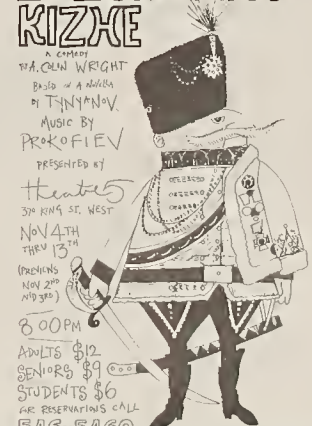 KIZHE
A COMEDY
BY A. COLIN WRIGHT
BASED ON A NOVELLA
BY TYNYANOV
MUSIC BY
PROKOFIEV
PRESENTED BY
theatre 5
370 KING ST. WEST
NOV 4TH
THRU 13TH
(PREVIEWS
NOV 2ND
AND 3RD)
8 00PM
ADULTS $12
SENIORS $9
STUDENTS $6
FOR RESERVATIONS CALL